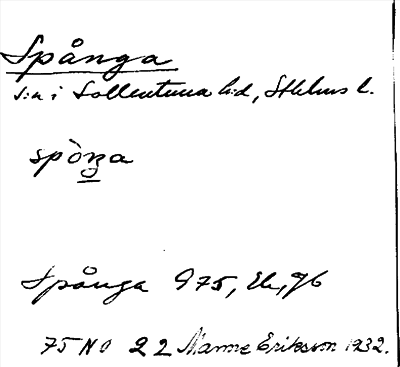 Spånga
s:n i Sollentuna h:d, Sthlms l.
spòŋa
Spånga 975, Ek, 76
75 NO 22 Manne Eriksson 1932.